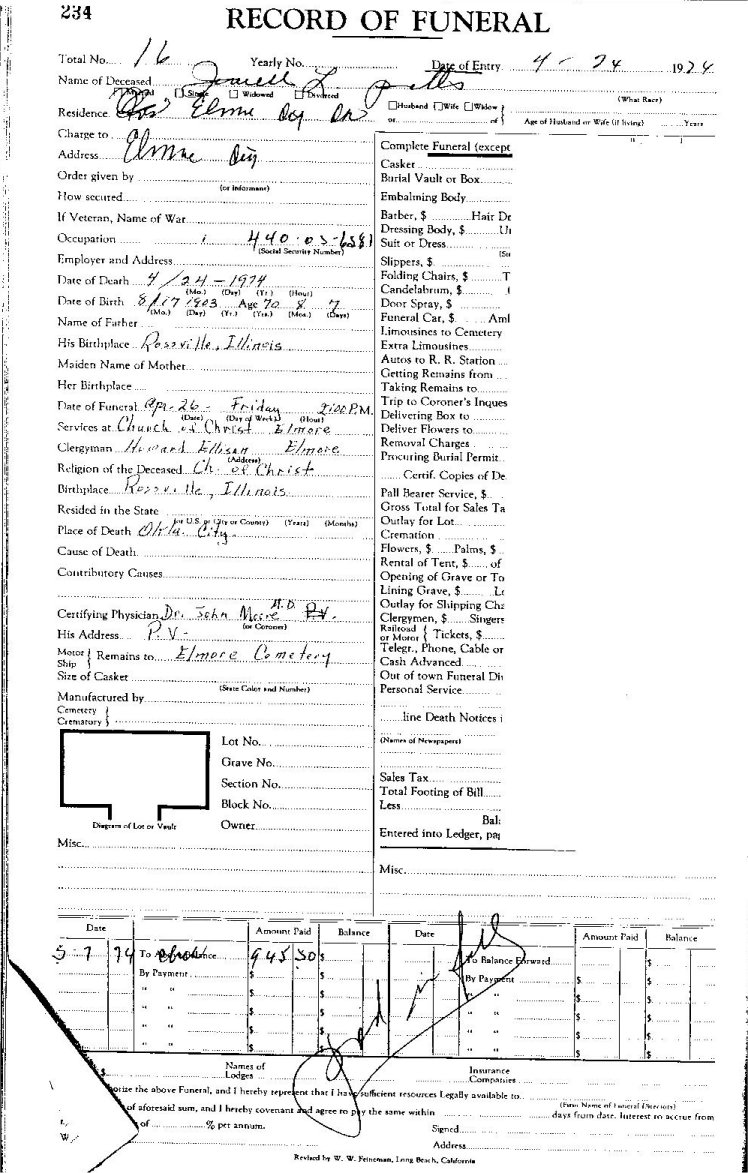 234
RECORD OF FUNERAL
Total No. 16 Yearly No. Date of Entry 4 - 24 1974
Name of Deceased
Married Single Widowed Divorced
Husband Wife Widow
(What Race)
Residence
or of
Age of Husband or Wife (if living) Years
Charge to
Address
Order given by
(or informant)
How secured
If Veteran, Name of War
Occupation
(Social Security Number)
Employer and Address
Date of Death 4/24-1974
(Mo.) (Day) (Yr.) (Hour)
Date of Birth 8/17 1903 Age 70 8 7
(Mo.) (Day) (Yr.) (Yrs.) (Mos.) (Days)
Name of Father
His Birthplace Rossville, Illinois
Maiden Name of Mother
Her Birthplace
Date of Funeral Apr. 26 - Friday 2:00 P.M.
(Date) (Day of Week) (Hour)
Services at Church of Christ Elmore
Clergyman Howard Ellison Elmore
(Address)
Religion of the Deceased Ch. of Christ
Birthplace Rossville, Illinois
Resided in the State
(or U.S. or City or County) (Years) (Months)
Place of Death Okla. City.
Cause of Death
Contributory Causes
Certifying Physician Dr. John Moore M.D. P.V.
(or Coroner)
His Address P.V.
Motor Ship Remains to Elmore Cemetery
Size of Casket
(State Color and Number)
Manufactured by
Cemetery
Crematory
Lot No.
Grave No.
Section No.
Block No.
Owner
Diagram of Lot or Vault
Misc.
Complete Funeral (except
Casket
Burial Vault or Box
Embalming Body
Barber, $ Hair Dr
Dressing Body, $ U
Suit or Dress
Slippers, $
Folding Chairs, $ T
Candelabrum, $
Door Spray, $
Funeral Car, $ Aml
Limousines to Cemetery
Extra Limousines
Autos to R. R. Station
Getting Remains from
Taking Remains to
Trip to Coroner's Inques
Delivering Box to
Deliver Flowers to
Removal Charges
Procuring Burial Permit
Certif. Copies of De
Pall Bearer Service, $
Gross Total for Sales Ta
Outlay for Lot
Cremation
Flowers, $ Palms, $
Rental of Tent, $ of
Opening of Grave or To
Lining Grave, $
Outlay for Shipping Cha
Clergymen, $ Singers
Railroad or Motor Tickets, $
Telegr., Phone, Cable or
Cash Advanced
Out of town Funeral Di
Personal Service
line Death Notices i
(Names of Newspapers)
Sales Tax
Total Footing of Bill
Less
Bal
Entered into Ledger, pag
Misc.
Date Amount Paid Balance Date Amount Paid Balance
5 7 74 To 945 30 $ To Balance Forward $
By Payment $ $ By Payment $ $
" " $ $ " " $ $
" " $ $ " " $ $
" " $ $ " " $ $
" " $ $ " " $ $
Paid in full
Names of Lodges
Insurance Companies
orize the above Funeral, and I hereby represent that I have sufficient resources Legally available to
(Firm Name of Funeral Directors)
of aforesaid sum, and I hereby covenant and agree to pay the same within days from date. Interest to accrue from
of % per annum.
Signed
Address
Revised by W. W. Feineman, Long Beach, California